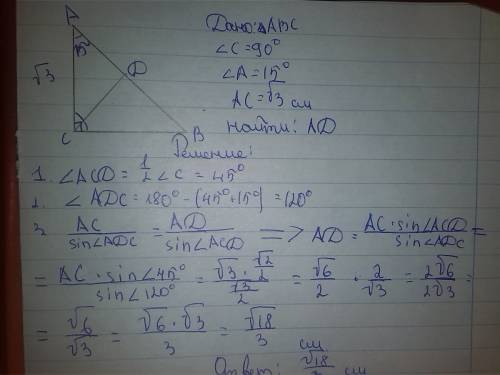 A
15°
√3
D
C
B
Дано: ΔABC
∠C=90°
∠A=15°
AC=√3 см
Найти: AD
Решение:
1. ∠ACD = 1/2 ∠C = 45°
2. ∠ADC = 180° - (45° + 15°) = 120°
3. AC/sin∠ADC = AD/sin∠ACD => AD = AC·sin∠ACD/sin∠ADC =
= AC·sin∠45°/sin∠120° = (√3·√2/2)/(√3/2) = √6/2 · 2/√3 = 2√6/2√3 =
= √6/√3 = √6·√3/3 = √18/3 см
Ответ: √18/3 см